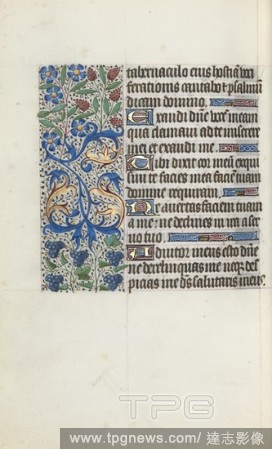 tabernaculo eius hostia voci
ferationis cantabo et psalmū
dicam domino.
Exaudi dn̄e vocem meam
qua clamaui ad te miserere
mei et exaudi me.
Tibi dixit cor meū exqui
siuit te facies mea faciē tuam
domine requiram.
Ne auertas faciem tuam
a me: ne declines in ira a ser
uo tuo.
Adiutor meus esto dn̄e
ne derelinquas me neqꝫ des
picias me dꝰ salutaris meus.
TPG
www.tpgnews.com/達志影像